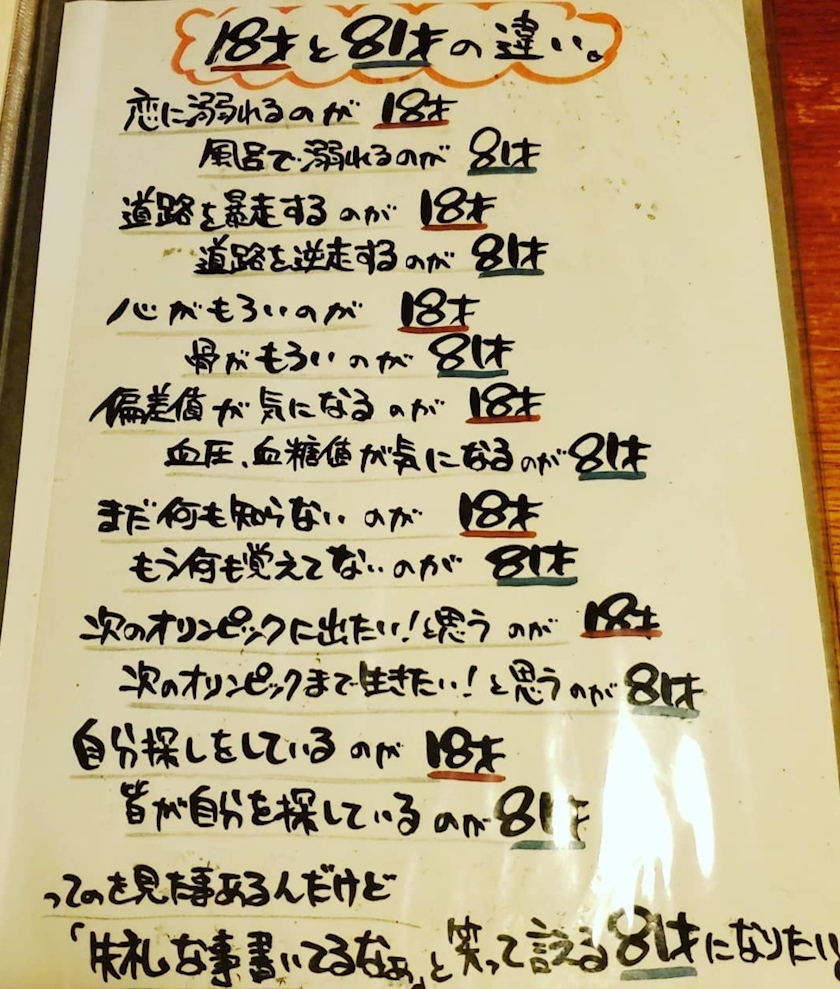 18才と81才の違い。
恋に溺れるのが 18才
風呂で溺れるのが 81才
道路を暴走するのが 18才
道路を逆走するのが 81才
心がもろいのが 18才
骨がもろいのが 81才
偏差値が気になるのが 18才
血圧、血糖値が気になるのが 81才
まだ何も知らないのが 18才
もう何も覚えてないのが 81才
次のオリンピックに出たい!と思うのが 18才
次のオリンピックまで生きたい!と思うのが 81才
自分探しをしているのが 18才
皆が自分を探しているのが 81才
ってのを見た事あるんだけど
「失礼な事書いてるなぁ」と笑って言える81才になりたい。